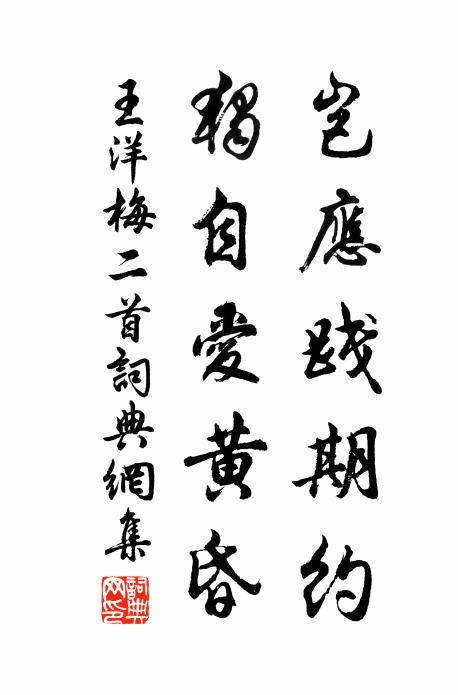 豈應踐期約
獨自愛黃昏
王洋梅二首詞典網集
詞典网印